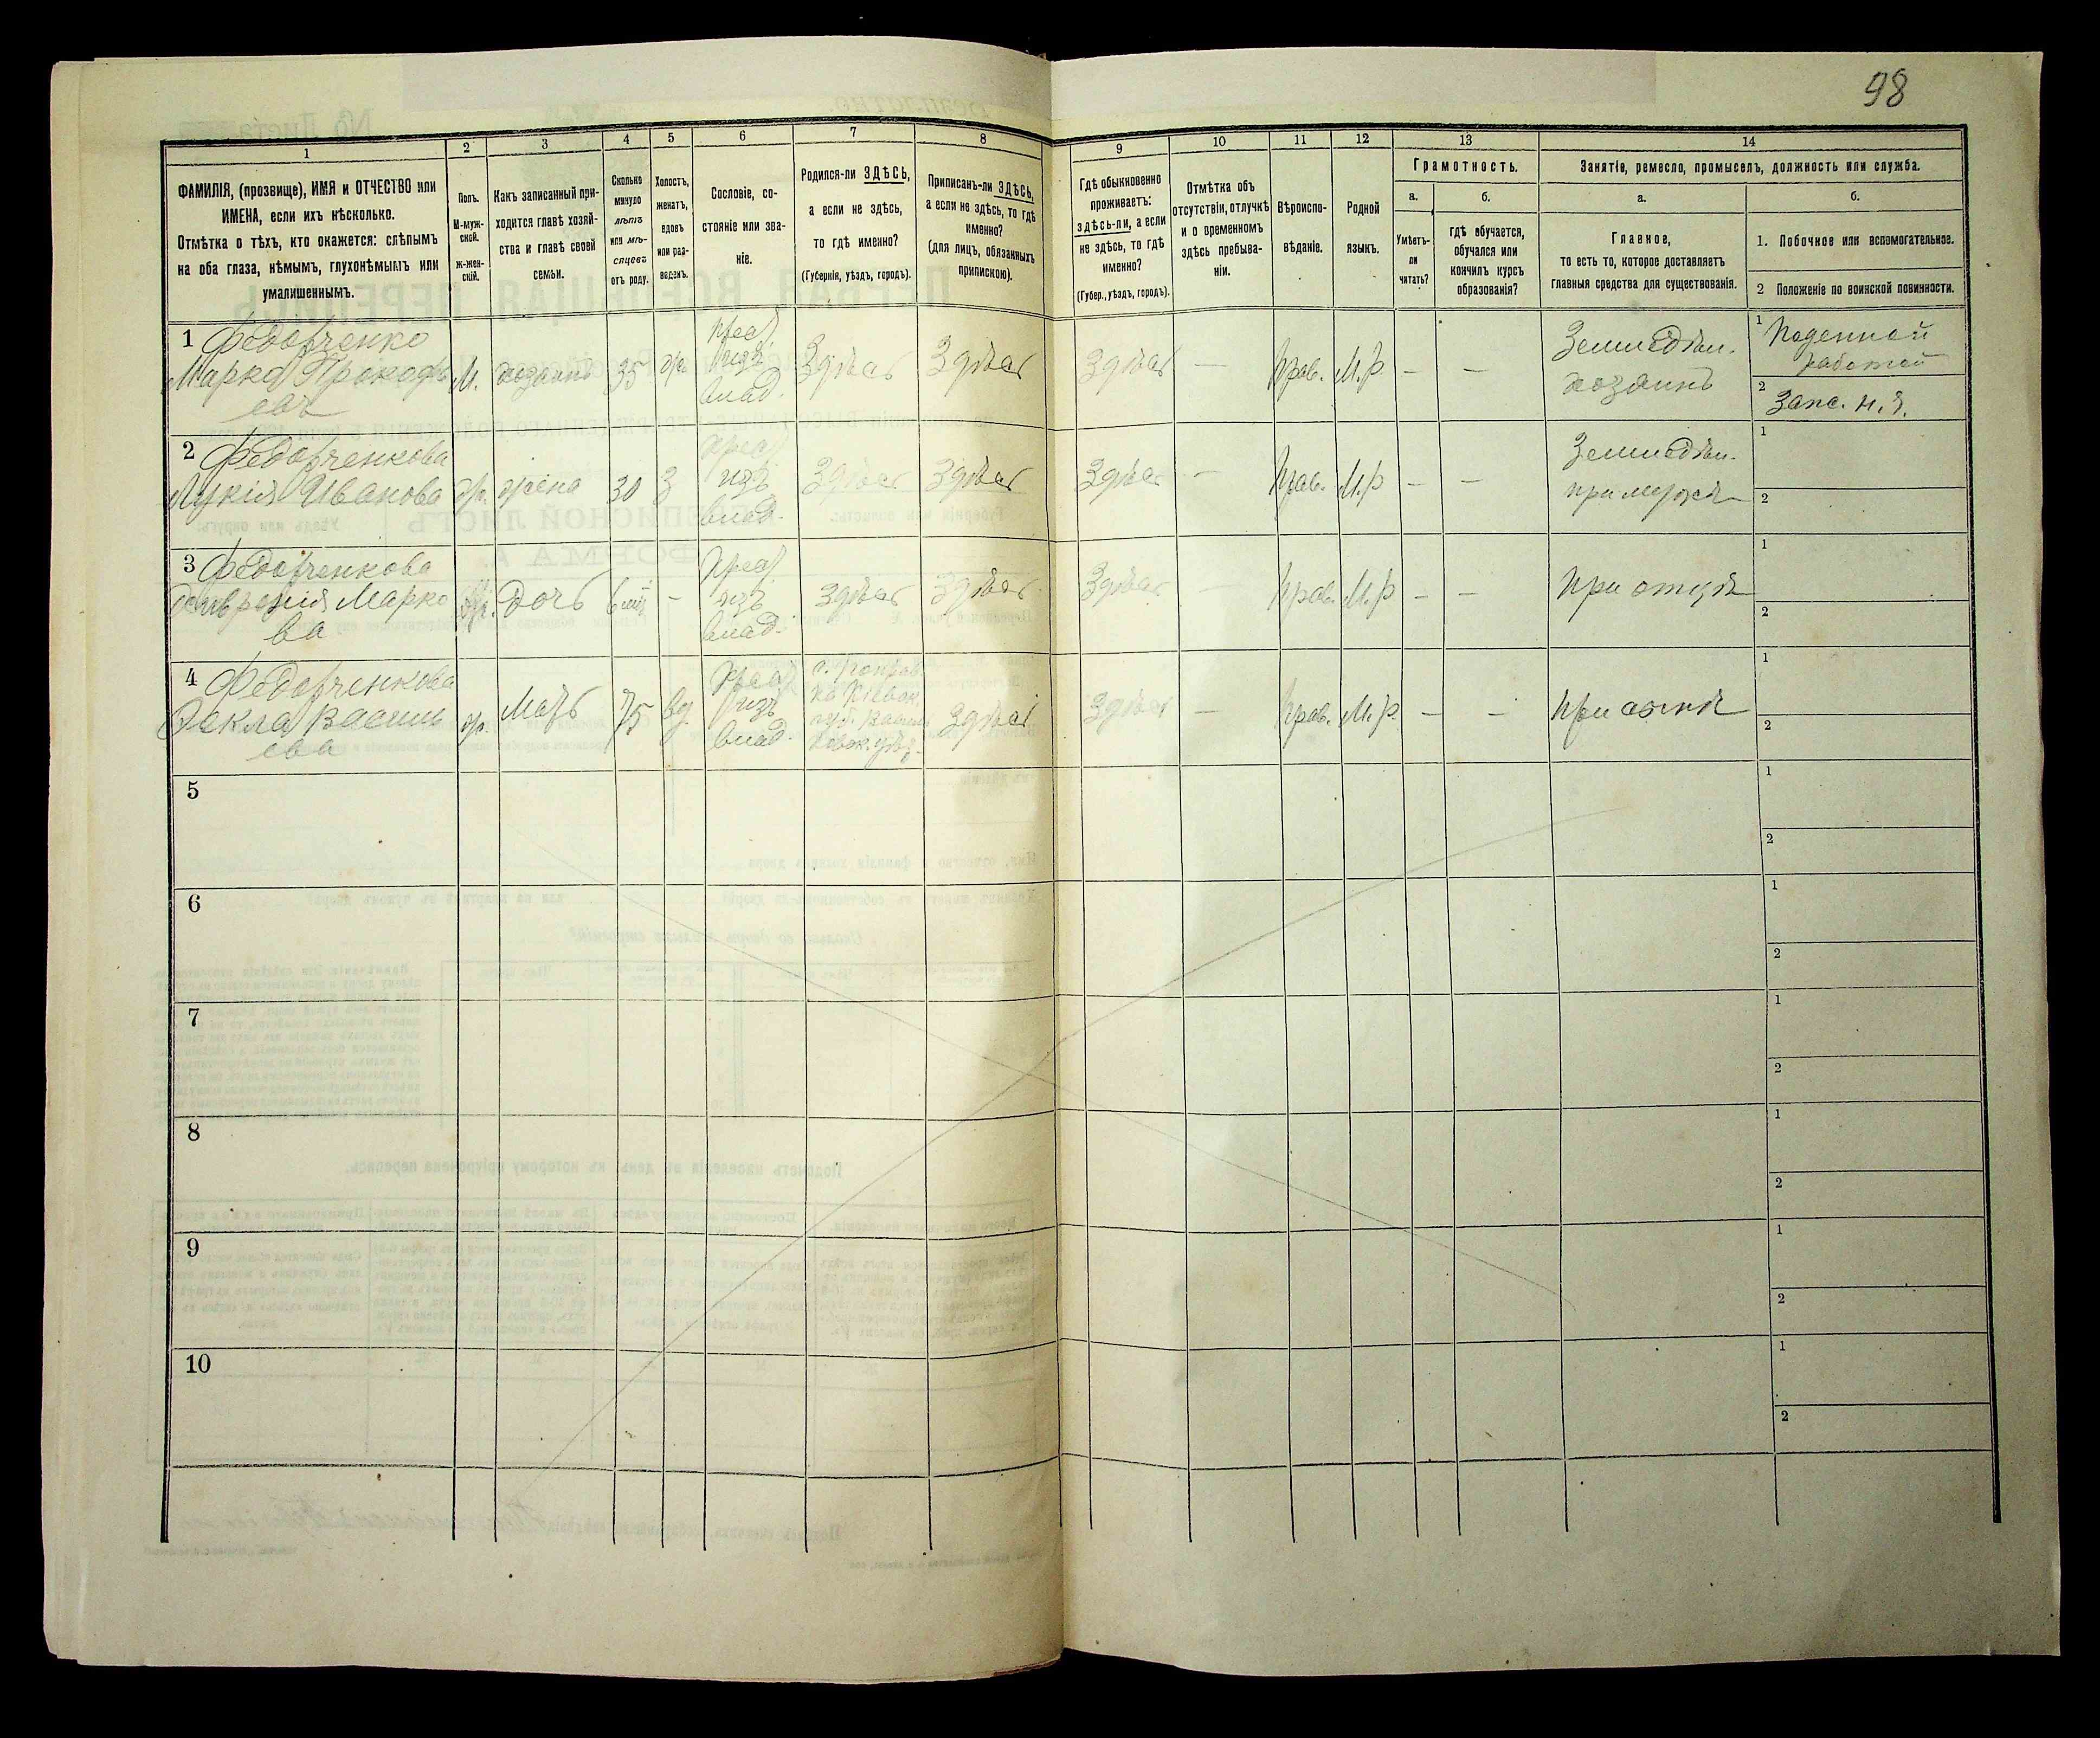 98
1
2
3
4
5
6
7
8
9
10
11
12
13
14
ФАМИЛІЯ, (прозвище), ИМЯ и ОТЧЕСТВО или
ИМЕНА, если ихъ нѣсколько.
Отмѣтка о тѣхъ, кто окажется: слѣпымъ
на оба глаза, нѣмымъ, глухонѣмымъ или
умалишеннымъ.
Полъ.
М-муж-
ской.
Ж-жен-
скій.
Какъ записанный при-
ходится главѣ хозяй-
ства и главѣ своей
семьи.
Сколько
минуло
лѣтъ
или мѣ-
сяцевъ
отъ роду.
Холостъ,
женатъ,
вдовъ
или раз-
веденъ.
Сословіе, со-
стояніе или зва-
ніе.
Родился-ли ЗДѢСЬ,
а если не здѣсь,
то гдѣ именно?
(Губернія, уѣздъ, городъ).
Приписанъ-ли ЗДѢСЬ,
а если не здѣсь, то гдѣ
именно?
(для лицъ, обязанныхъ
припискою).
Гдѣ обыкновенно
проживаетъ:
здѣсь-ли, а если
не здѣсь, то гдѣ
именно?
(Губер., уѣздъ, городъ).
Отмѣтка объ
отсутствіи, отлучкѣ
и о временномъ
здѣсь пребыва-
ніи.
Вѣроиспо-
вѣданіе.
Родной
языкъ.
Грамотность.
а.
Умѣетъ-
ли
читать?
б.
гдѣ обучается,
обучался или
кончилъ курсъ
образованія?
Занятіе, ремесло, промыселъ, должность или служба.
а.
Главное,
то есть то, которое доставляетъ
главныя средства для существованія.
б.
1. Побочное или вспомогательное.
2 Положеніе по воинской повинности.
1 Федорченко
Марко Прокофь
евъ
М.
хозяинъ
35
ж.
Крест.
изъ
влад.
Здѣсь
Здѣсь
Здѣсь
—
Прав.
М.р
—
—
Землєдѣл.
хозяинъ
1 Поденной
работой
2 Запс. н. ч.
2 Федорченкова
Лукія Иванова
ж.
жена
30
З
Крест.
изъ
влад.
Здѣсь
Здѣсь
Здѣсь
—
Прав.
М.р
—
—
Землєдѣл.
при мужѣ
1
2
3 Федорченкова
Марко
ва
ж.
Дочь
6
—
Крест.
изъ
влад.
Здѣсь
Здѣсь
Здѣсь
—
Прав.
М.р
—
—
При отцѣ
1
2
4 Федорченкова
Фекла Василь
ева
ж.
Мать
75
вд.
Крест.
изъ
влад.
губ. Василь
ковск. уѣз.
Здѣсь
Здѣсь
—
Прав.
М.р.
—
—
При сынѣ
1
2
5
1
2
6
1
2
7
1
2
8
1
2
9
1
2
10
1
2